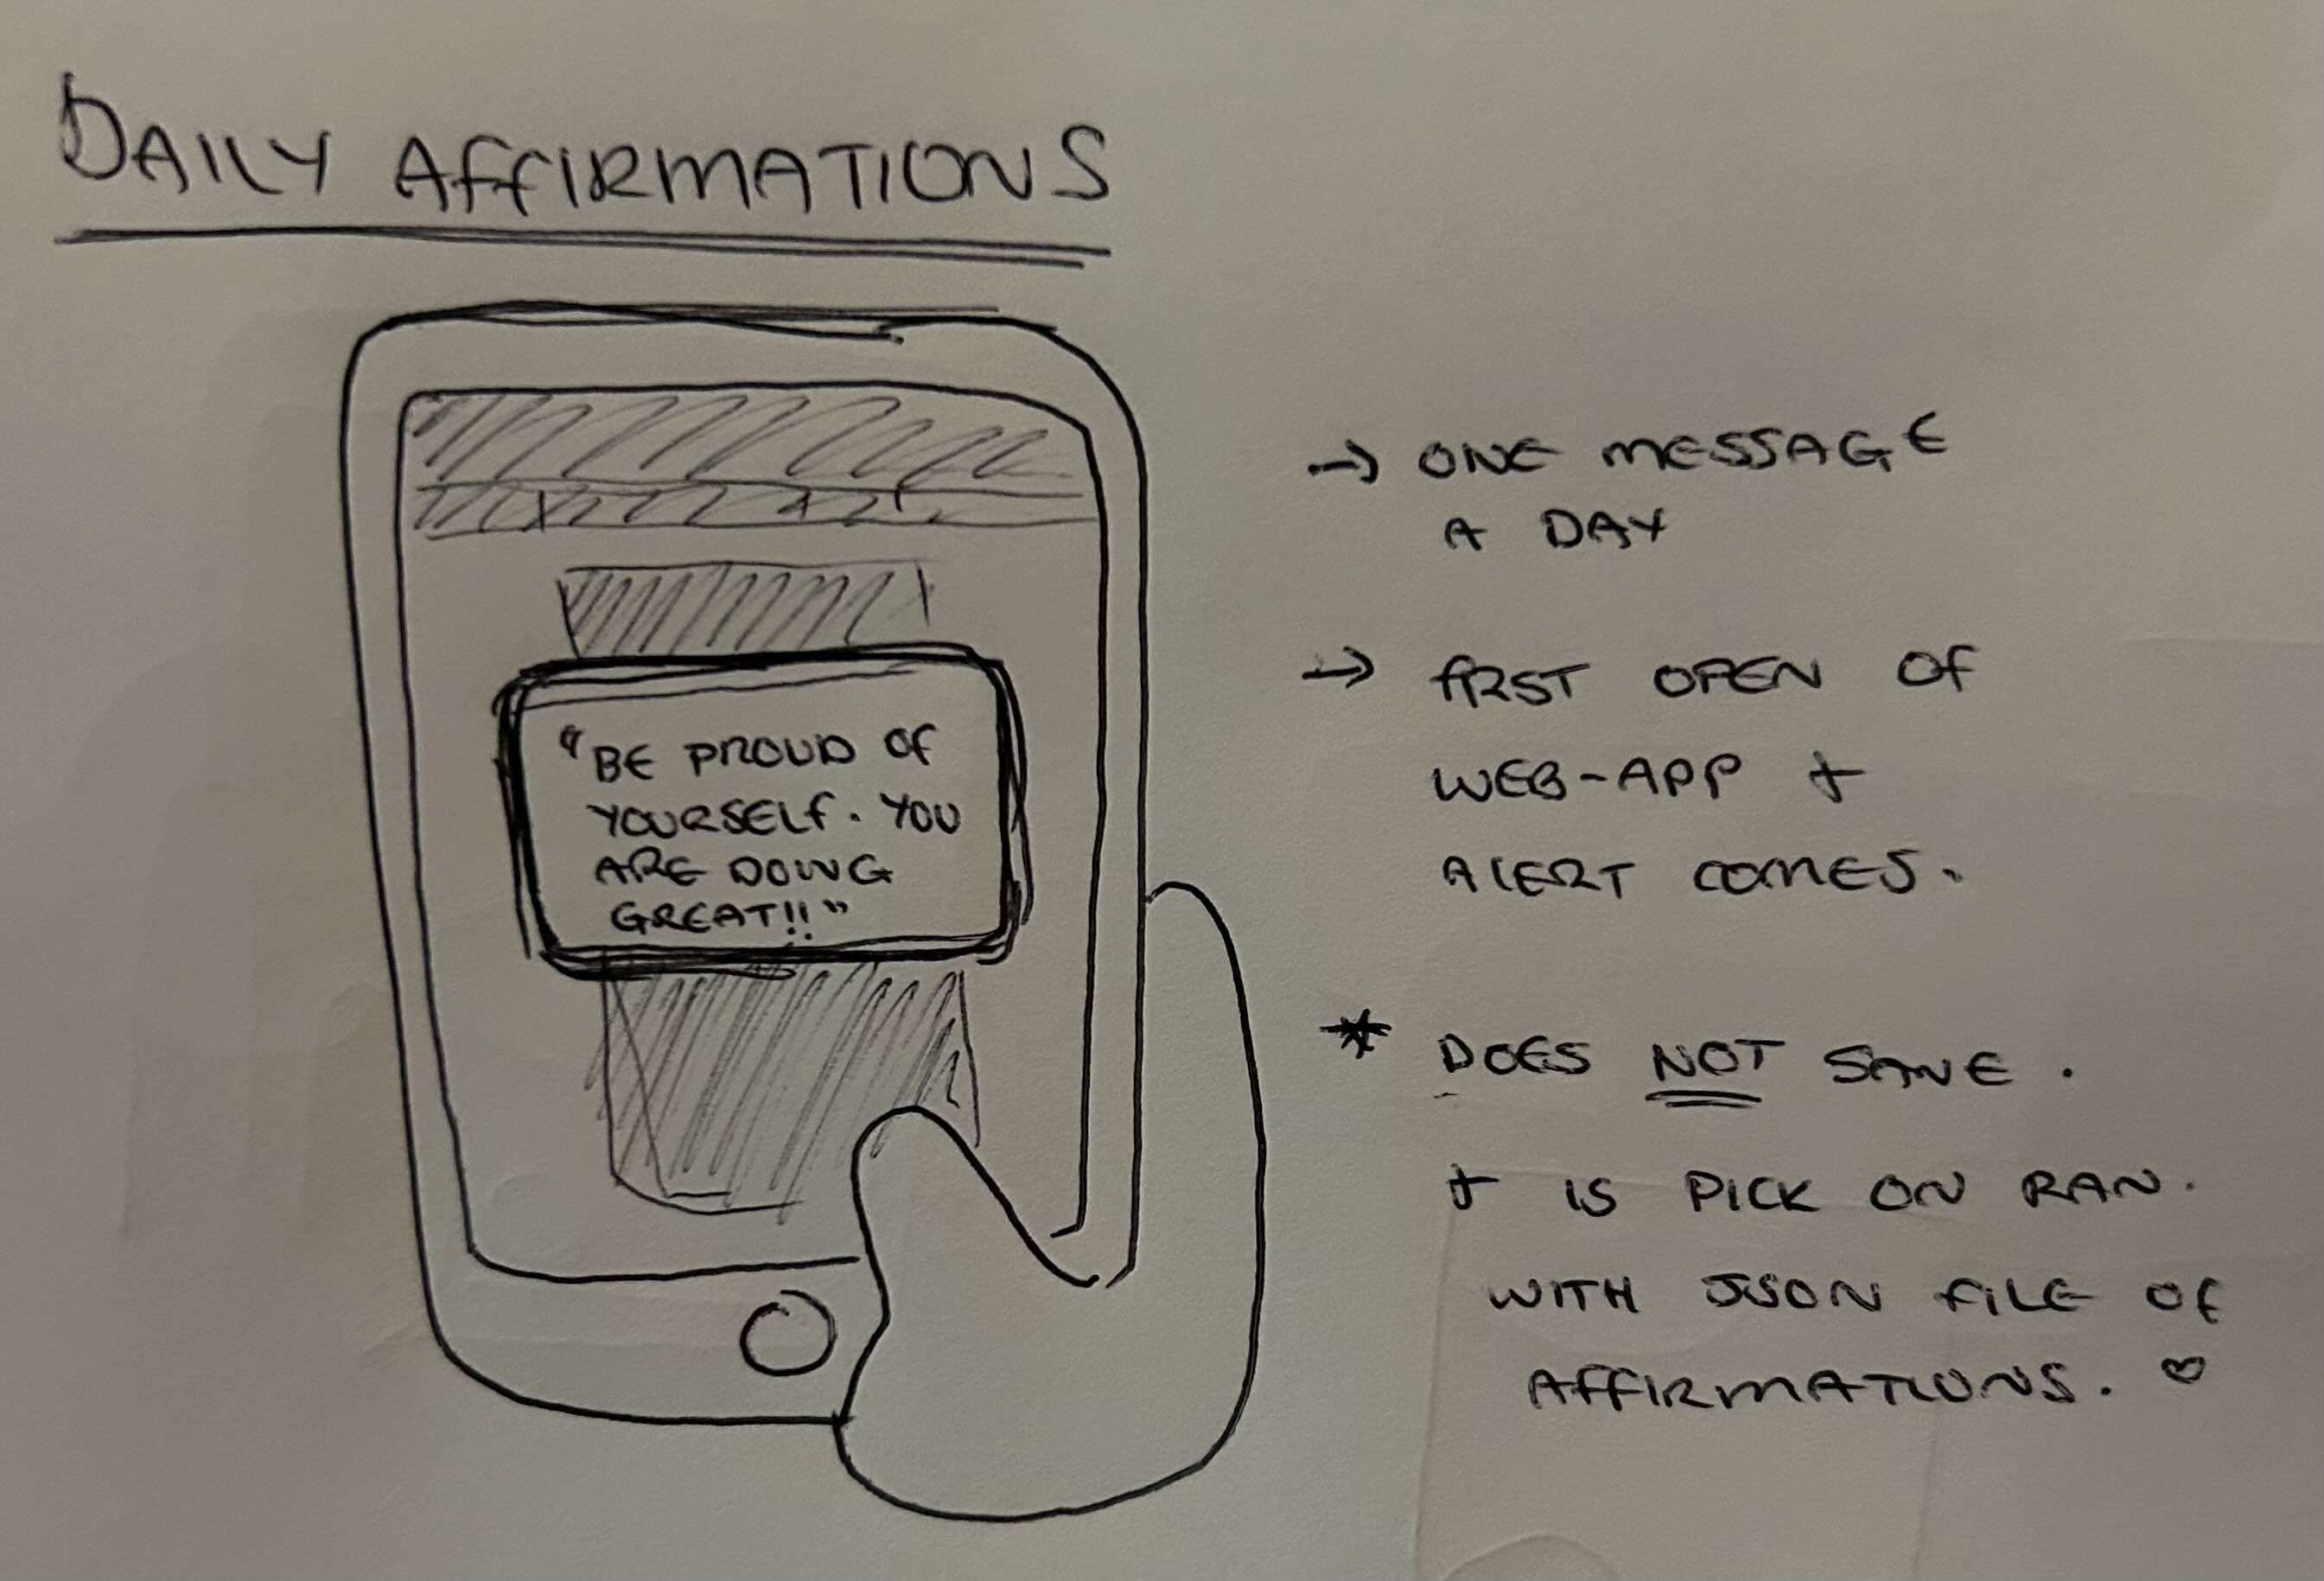 DAILY AFFIRMATIONS
"BE PROUD OF
YOURSELF. YOU
ARE DOING
GREAT!!"
→ ONE MESSAGE
A DAY
→ FIRST OPEN OF
WEB-APP +
ALERT COMES.
* DOES NOT SAVE.
+ IS PICK ON RAN.
WITH JSON FILE OF
AFFIRMATIONS. ♡